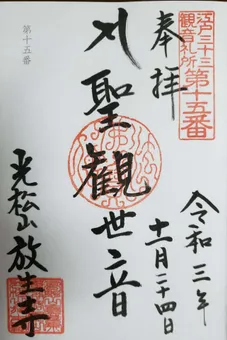 江戸三十三
観音札所
第十五番
奉拝
令和三年
十一月二十四日
聖観世音
光松山放生寺
第十五番